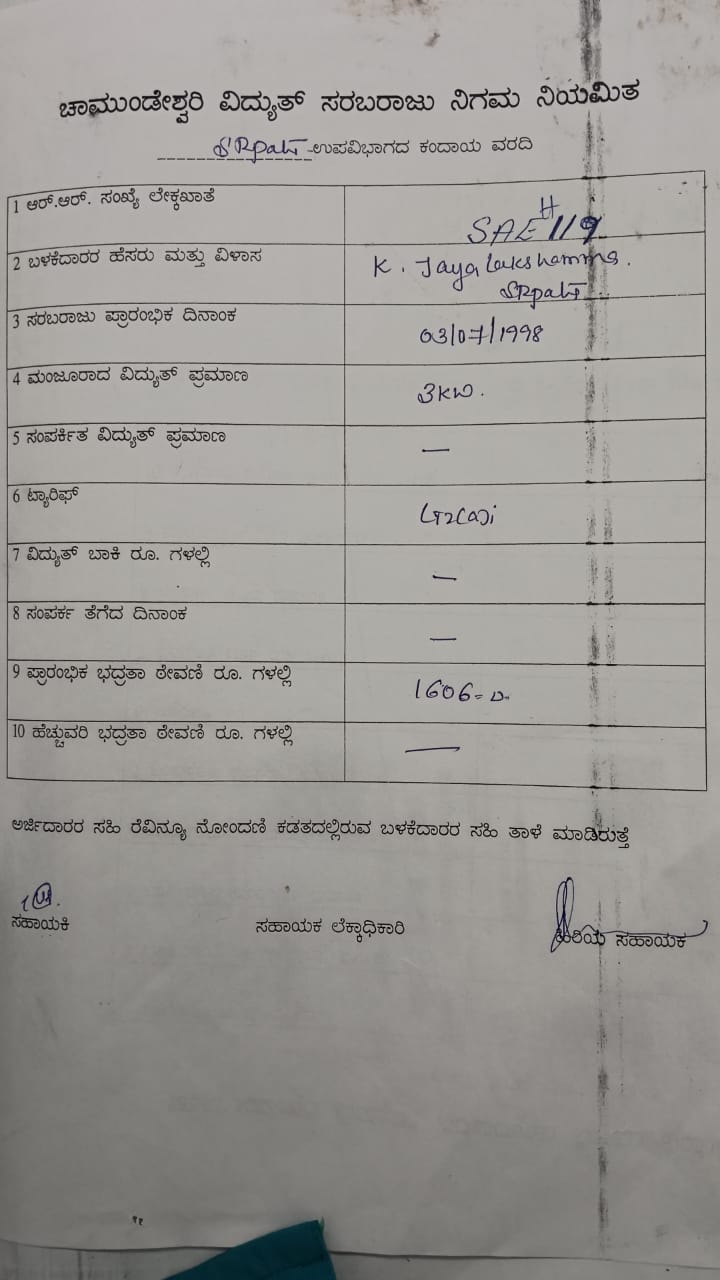 ಚಾಮುಂಡೇಶ್ವರಿ ವಿದ್ಯುತ್ ಸರಬರಾಜು ನಿಗಮ ನಿಯಮಿತ
SRpatı ಉಪವಿಭಾಗದ ಕಂದಾಯ ವರದಿ
1 ಆರ್.ಆರ್. ಸಂಖ್ಯೆ ಲೇಕ್ಕಖಾತೆ
SAEH 119
2 ಬಳಕೆದಾರರ ಹೆಸರು ಮತ್ತು ವಿಳಾಸ
K. Jayalakshamma.
3 ಸರಬರಾಜು ಪ್ರಾರಂಭಿಕ ದಿನಾಂಕ
03/07/1998
4 ಮಂಜೂರಾದ ವಿದ್ಯುತ್ ಪ್ರಮಾಣ
3KW.
5 ಸಂಪರ್ಕಿತ ವಿದ್ಯುತ್ ಪ್ರಮಾಣ
—
6 ಟ್ಯಾರಿಫ್
7 ವಿದ್ಯುತ್ ಬಾಕಿ ರೂ. ಗಳಲ್ಲಿ
—
8 ಸಂಪರ್ಕ ತೆಗೆದ ದಿನಾಂಕ
—
9 ಪ್ರಾರಂಭಿಕ ಭದ್ರತಾ ಠೇವಣಿ ರೂ. ಗಳಲ್ಲಿ
1606=00
10 ಹೆಚ್ಚುವರಿ ಭದ್ರತಾ ಠೇವಣಿ ರೂ. ಗಳಲ್ಲಿ
—
ಅರ್ಜಿದಾರರ ಸಹಿ ರೆವಿನ್ಯೂ ನೋಂದಣಿ ಕಡತದಲ್ಲಿರುವ ಬಳಕೆದಾರರ ಸಹಿ ತಾಳೆ ಮಾಡಿರುತ್ತೆ
ಸಹಾಯಕಿ
ಸಹಾಯಕ ಲೆಕ್ಕಾಧಿಕಾರಿ
ಹಿರಿಯ ಸಹಾಯಕ